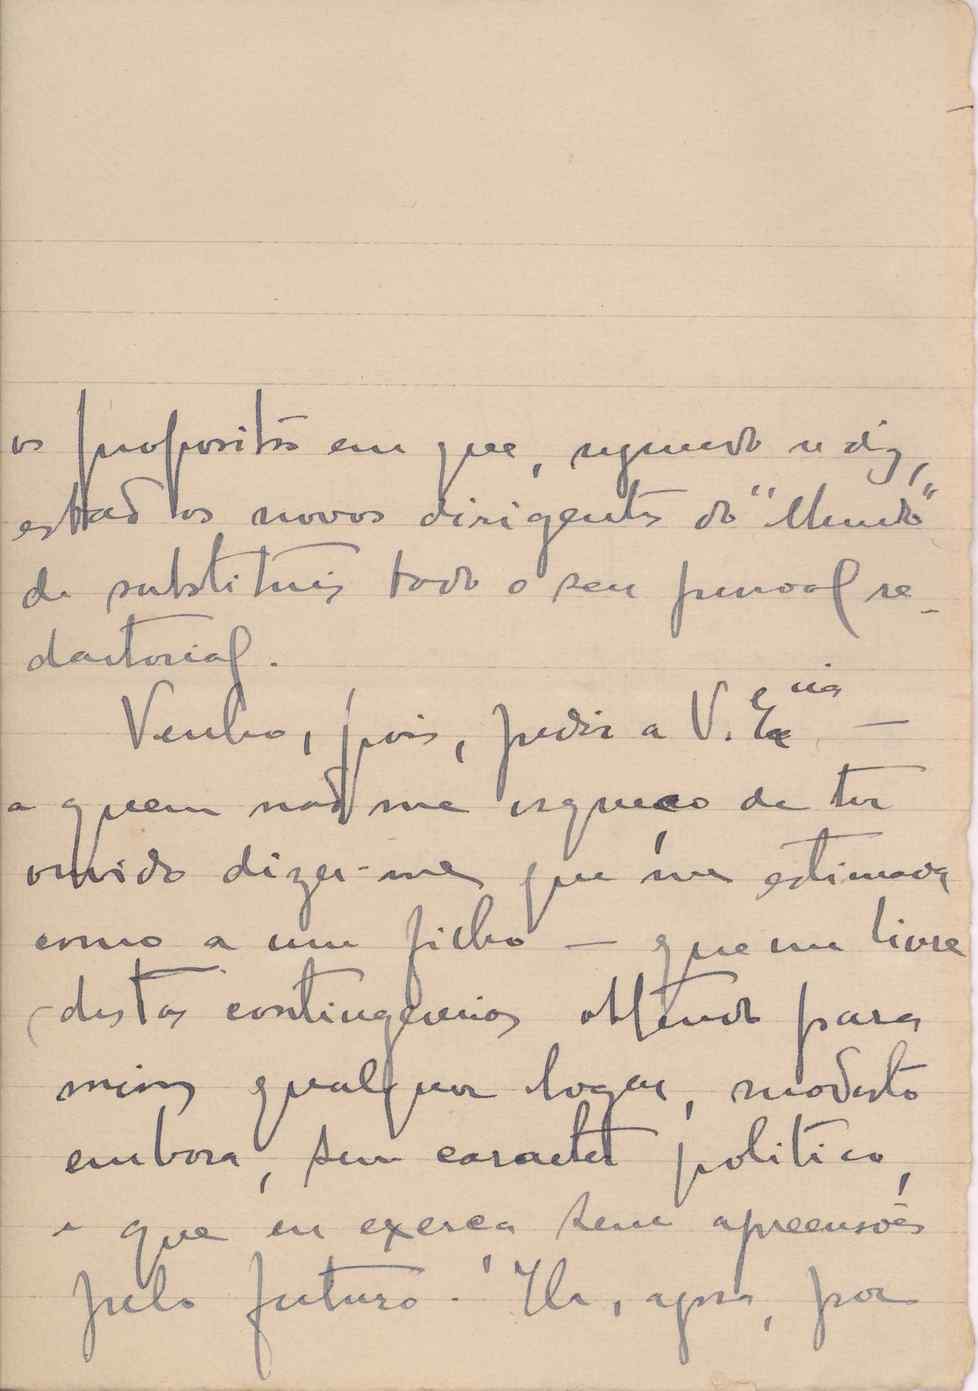 os propositos em que, segundo se diz,
estão os novos dirigentes do "Mundo"
de substituir todo o seu pessoal re-
dactorial.
Venho, pois, pedir a V. Excia —
a quem não me esqueço de ter
ouvido dizer-me que me estimava
como a um filho — que me livre
destas contingencias obtendo para
mim qualquer logar, modesto
embora, sem caracter politico,
e que eu exerça sem apreensões
pelo futuro. Ha, agora, por